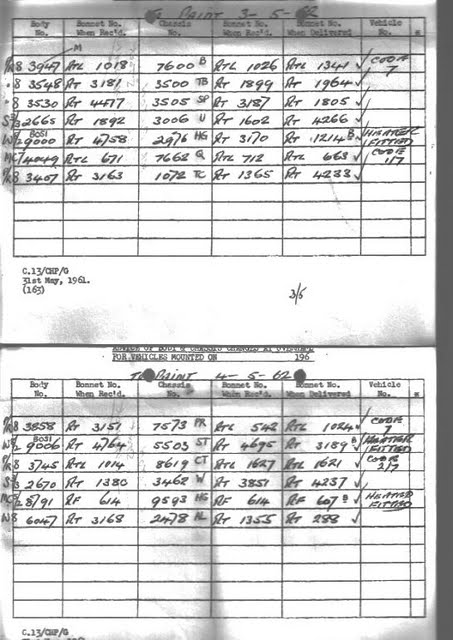 To PAINT 3-5-62
Body No. Bonnet No. When Rec'd. Chassis No. Bonnet No. When Rec'd. Bonnet No. When Delivered Vehicle No. *
M
8 3947 RTL 1018 7600 B RTL 1026 RTL 1341 ✓ CODE 7
8 3548 RT 3181 3500 TB RT 1899 RT 1964 ✓
8 3530 RT 4417 3505 SP RT 3187 RT 1805 ✓
2665 RT 1892 3006 U RT 1602 RT 4266 ✓
BOSI 9000 RT 4758 2976 HG RT 3170 RT 1214 B ✓ HEATER FITTED
4049 RTL 671 7662 Q RTL 712 RTL 663 ✓ CODE 1/7
8 3407 RT 3163 1072 TC RT 1365 RT 4233 ✓
C.13/CHP/G
31st May, 1961.
(163)
3/5
FOR VEHICLES MOUNTED ON 196
To PAINT 4-5-62
Body No. Bonnet No. When Rec'd. Chassis No. Bonnet No. When Rec'd. Bonnet No. When Delivered Vehicle No. *
8 3858 RT 3151 7573 PR RTL 542 RTL 1024 ✓ CODE 7
BOSI 9006 RT 4764 5503 ST RT 4695 RT 3189 B HEATER FITTED
8 3745 RTL 1014 8619 CT RTL 1627 RTL 1621 ✓ CODE 2/7
2670 RT 1380 3462 W RT 3851 RT 4237 ✓
8191 RF 614 9593 HG RF 614 RF 607 B ✓ HEATER FITTED
W8 6047 RT 3168 2478 AL RT 1355 RT 288 ✓
C.13/CHP/G